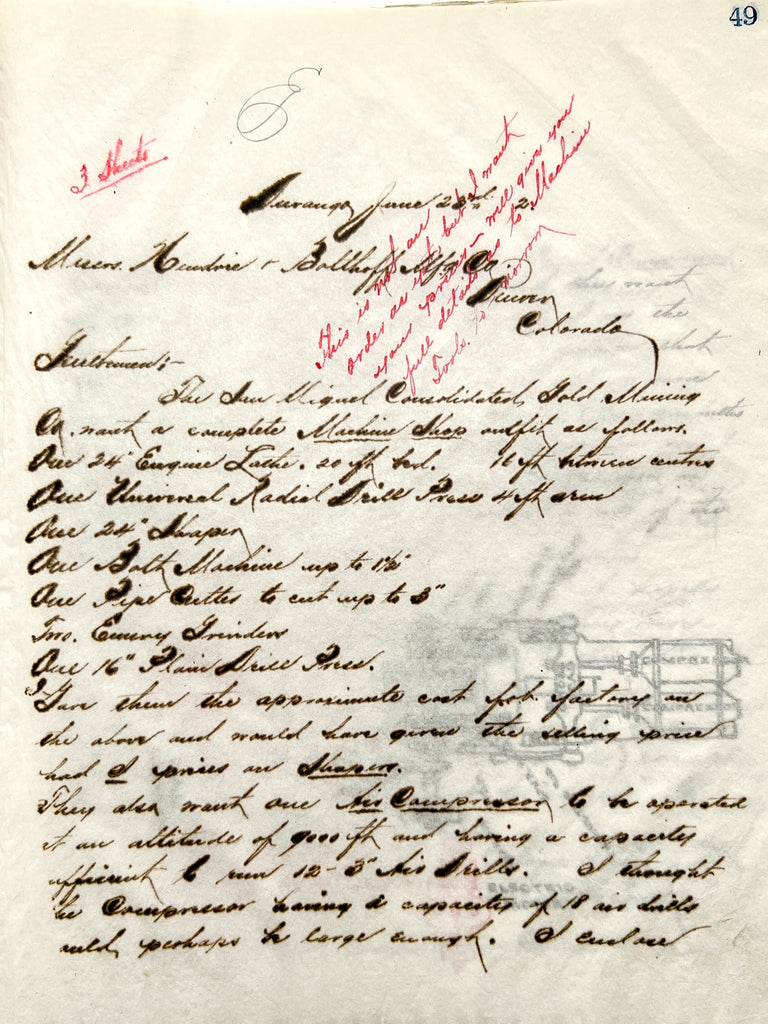 49
3 Sheets
Durango June 23rd 2
Messrs. Hendrie & Bolthoff Mfg Co.
Denver
Colorado
This is not an
order as yet but I want
your prices will give you
full details as to Machine
Tools. to morrow
Gentlemen:-
The San Miguel Consolidated Gold Mining
Co. want a complete Machine Shop outfit as follows.
One 24" Engine Lathe. 20 ft bed. ft between centres
One Universal Radial Drill Press 4 ft arm
One 24" Shaper
One Bolt Machine up to 1½"
One Pipe Cutter to cut up to 3"
Two. Emery Grinders
One 16" Plain Drill Press.
I Gave them the approximate cost f.o.b. factory on
the above and would have given the selling price
had I prices on Shapers.
They also want one Air Compressor to be operated
at an altitude of 9000 ft and having a capacity
sufficient to run 12-3" Air Drills. I thought
the Compressor having a capacity of 18 air drills
would perhaps be large enough. I enclose
COMPRESSOR
COMPRESSOR